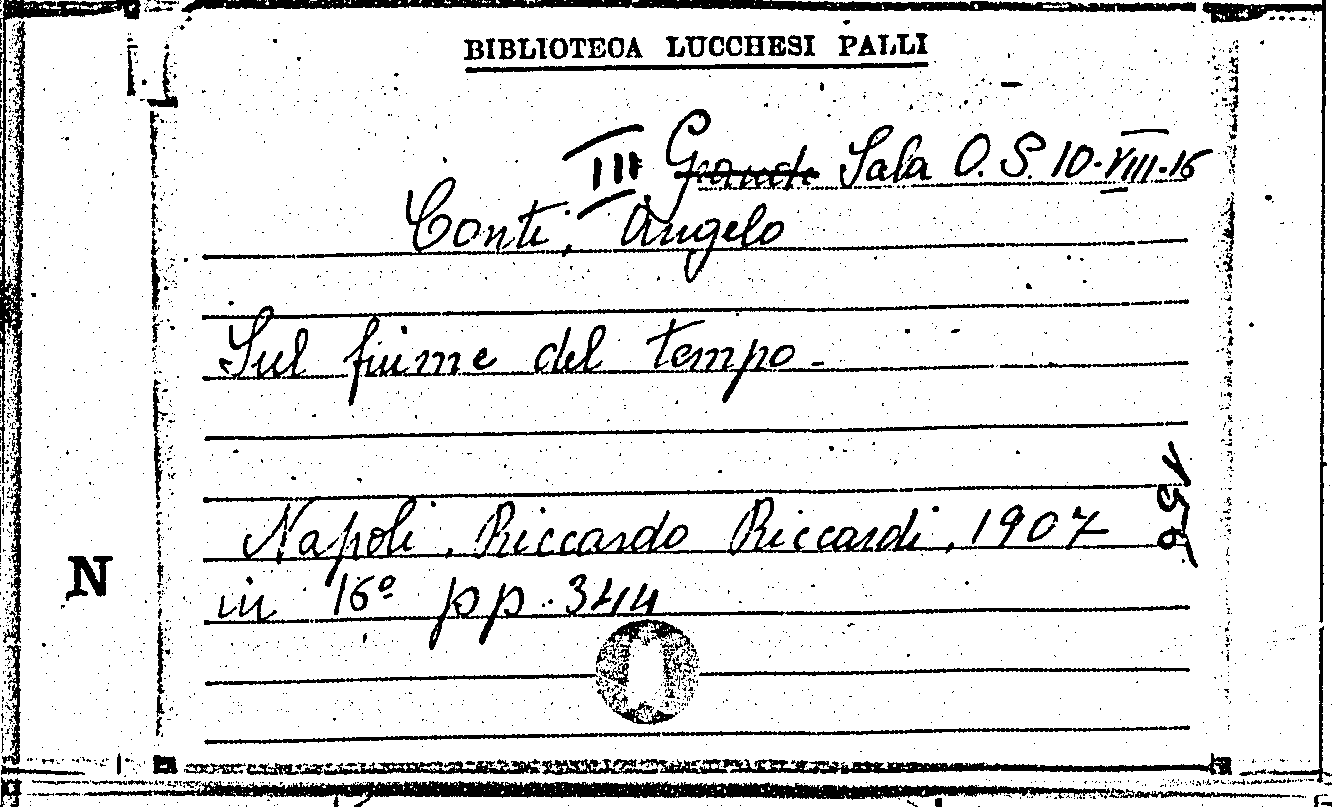 BIBLIOTECA LUCCHESI PALLI
III Grande Sala O. S. 10-VIII-16
Conti, Angelo
Sul fiume del tempo -
Napoli, Riccardo Riccardi, 1907
in 16º pp. 344
N